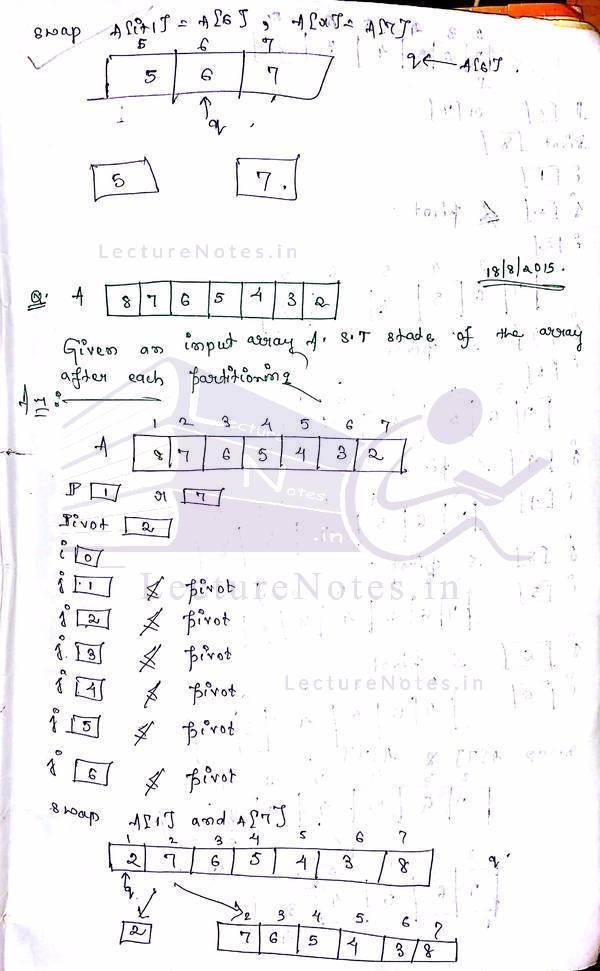 swap A[i+1] = A[6], A[r] = A[7]
5 6 7
5 6 7 q ← A[6].
i q
5 7.
LectureNotes.in
18/8/2015.
Q. A 8 7 6 5 4 3 2
Given an input array A. S.T state of the array
after each partitioning.
Ans:
1 2 3 4 5 6 7
A 8 7 6 5 4 3 2
P 1 r 7
Pivot 2
i 0
j 1 ≰ pivot
LectureNotes.in
j 2 ≰ pivot
j 3 ≰ pivot
j 4 ≰ pivot
LectureNotes.in
j 5 ≰ pivot
j 6 ≰ pivot
swap A[1] and A[7]
1 2 3 4 5 6 7
2 7 6 5 4 3 8 q
q
2 3 4 5 6 7
2 7 6 5 4 3 8